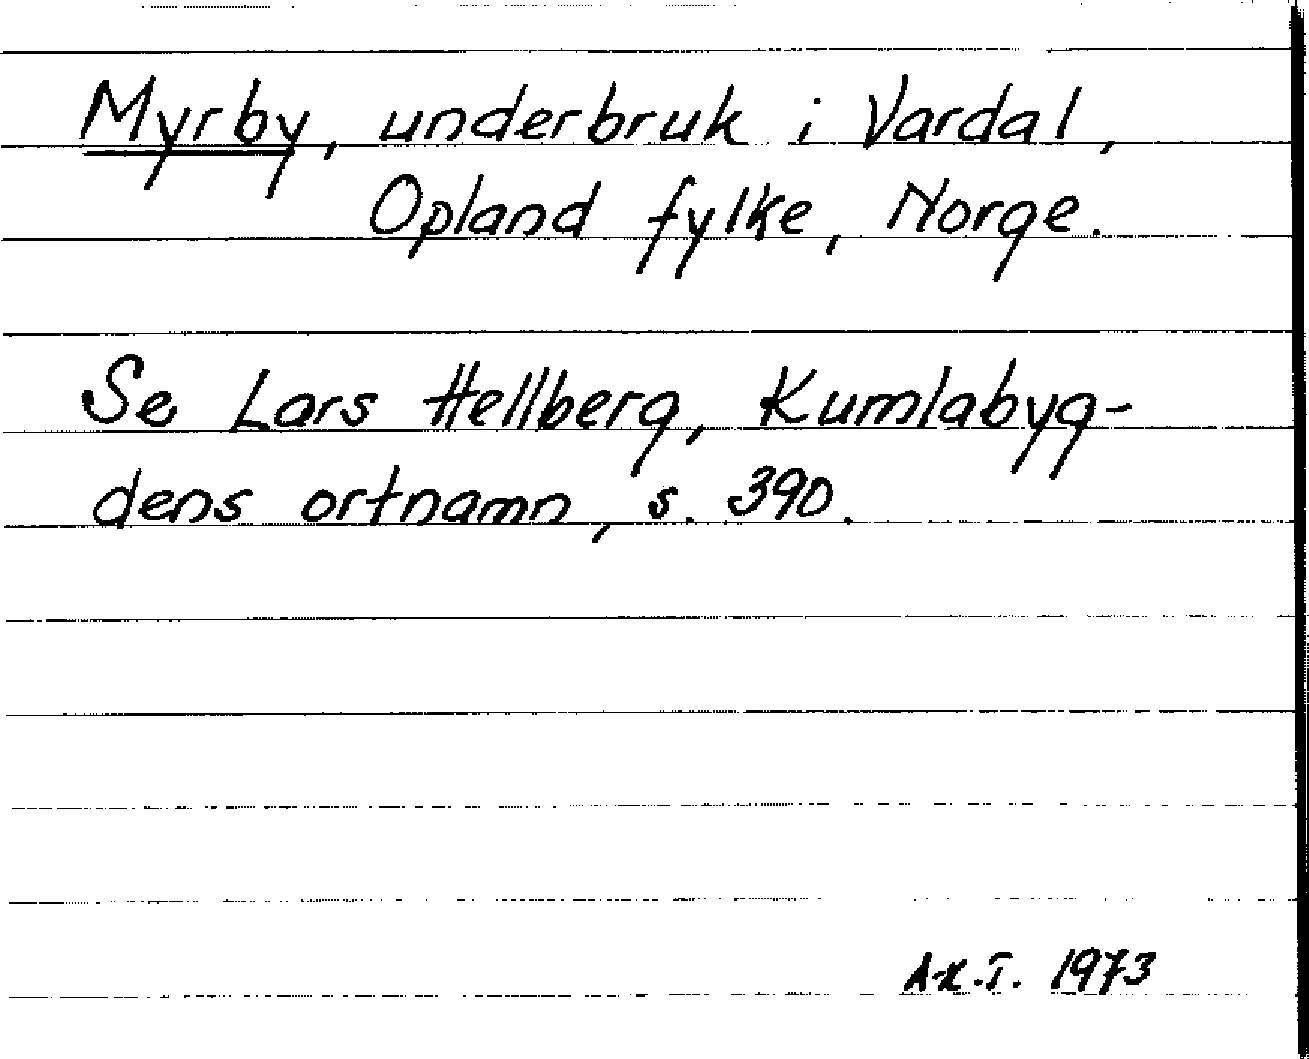 Myrby, underbruk i Vardal,
Opland fylke, Norge.
Se Lars Hellberg, Kumlabyg-
dens ortnamn, s. 390.
A-K.T. 1973